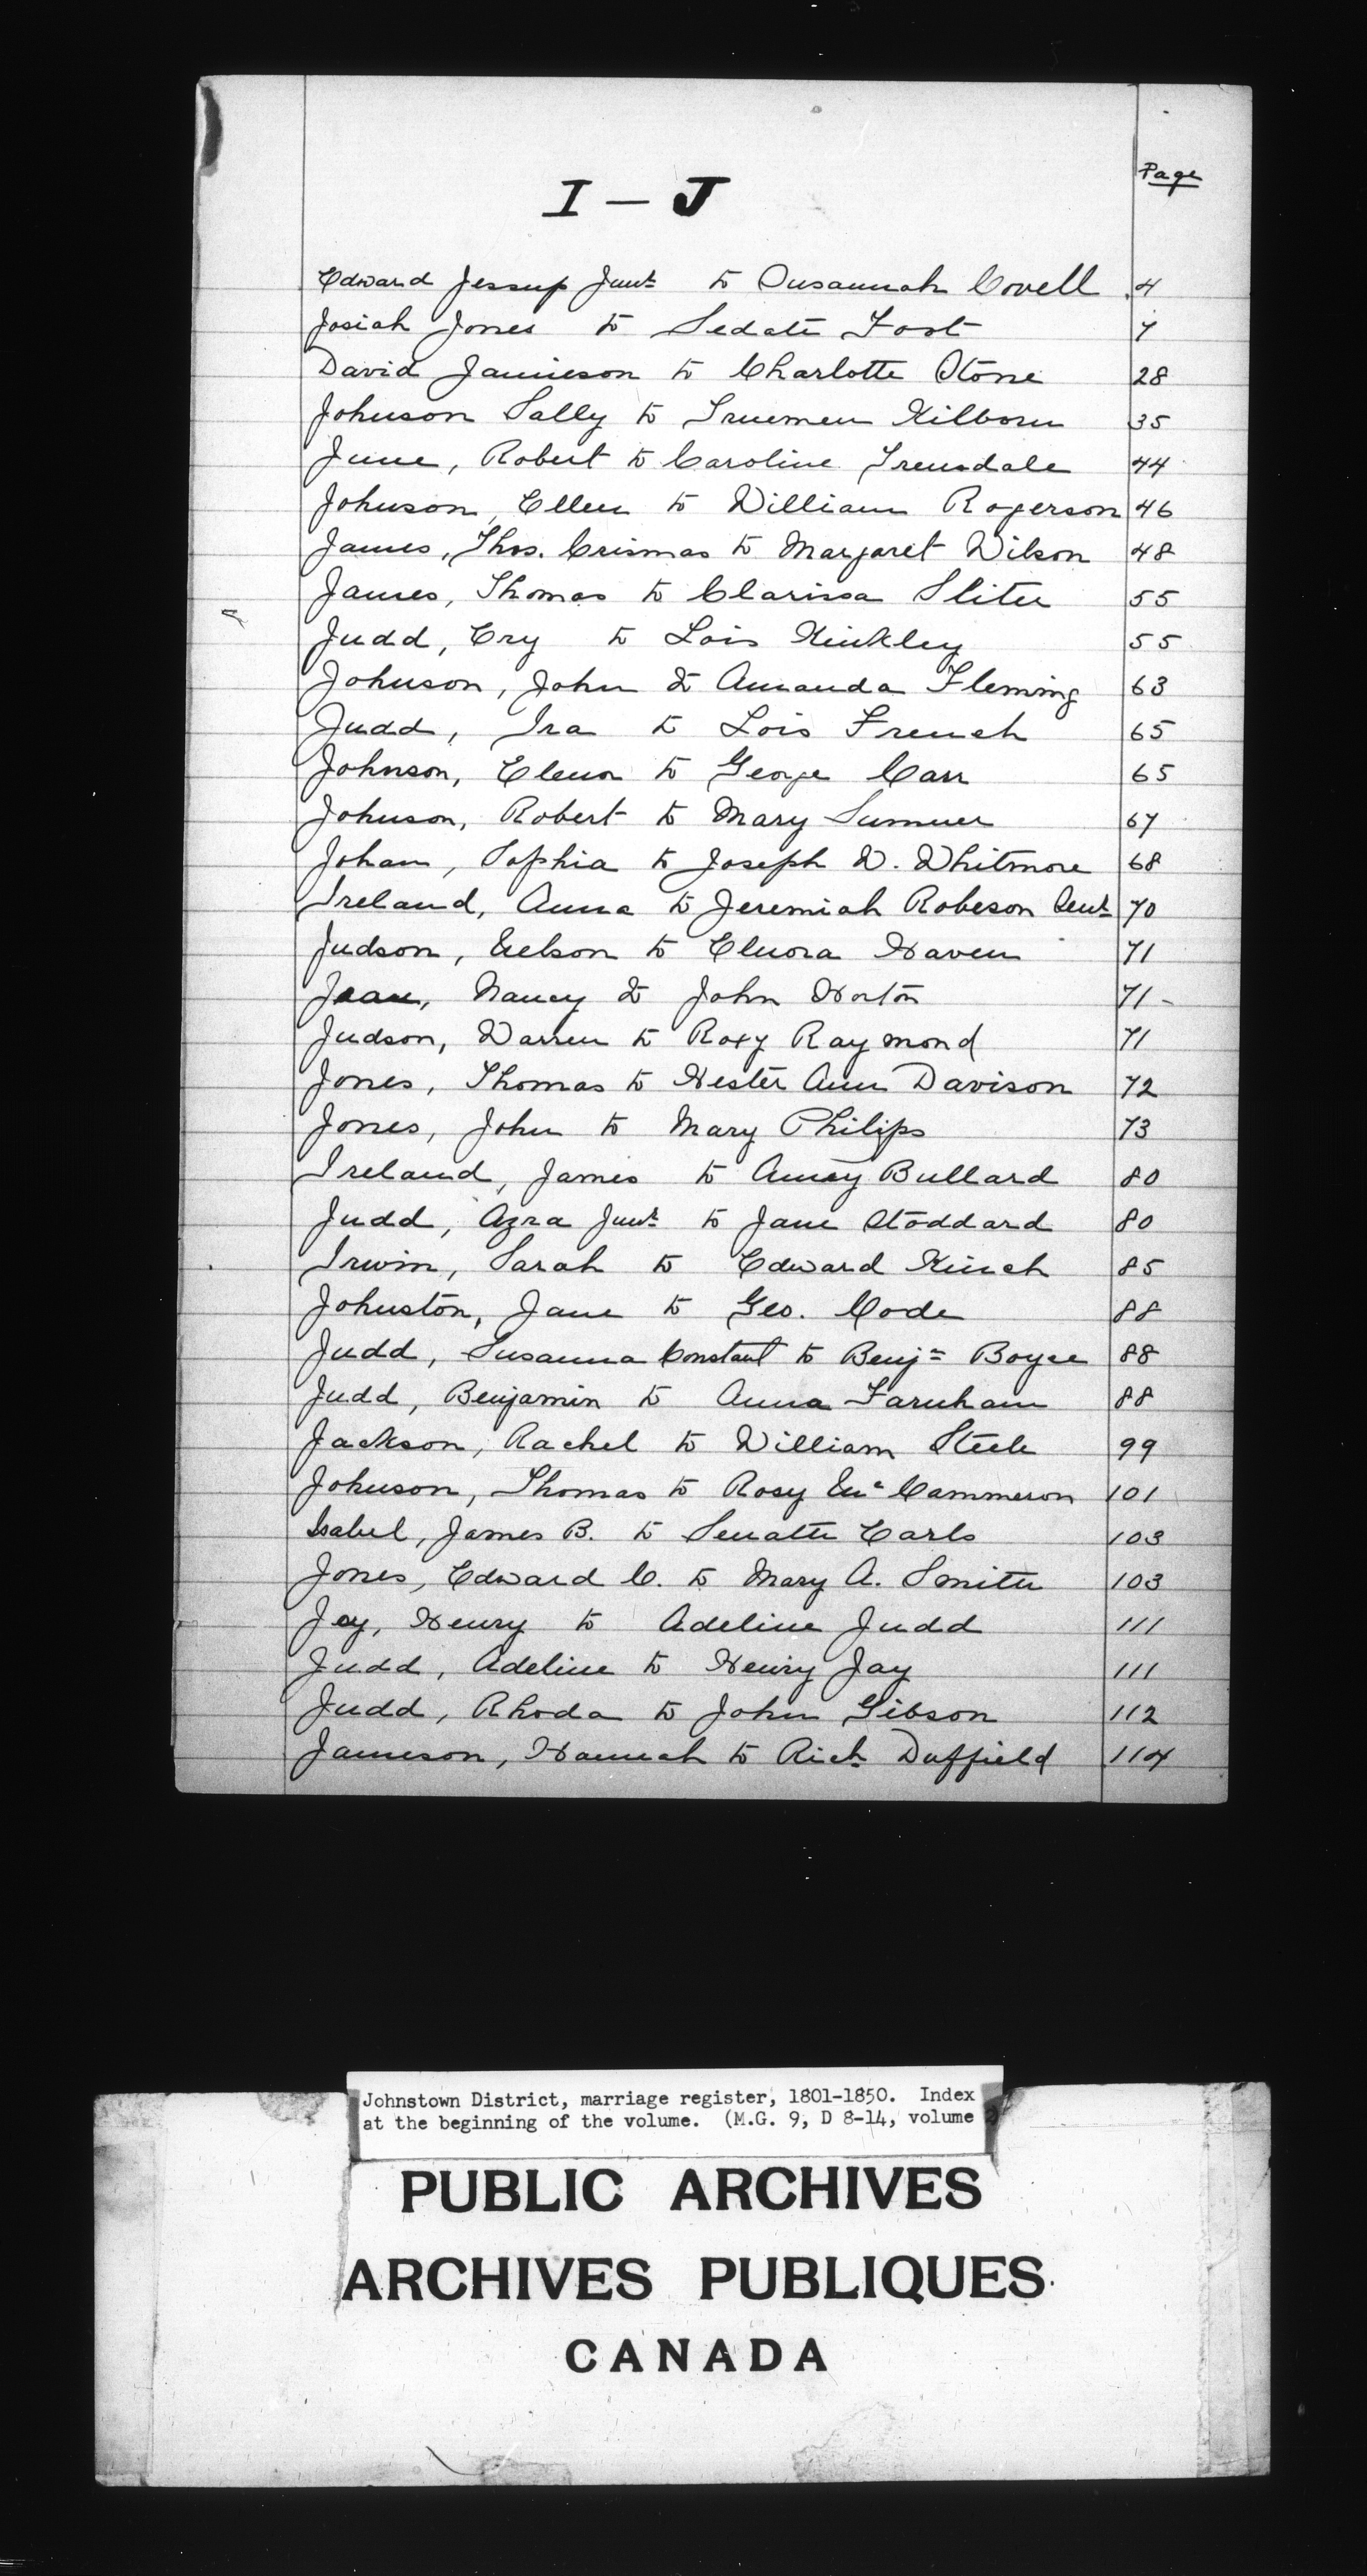 Page
I – J
Edward Jessup Junr to Susannah Covell 4
Josiah Jones to Sedate Foot 7
David Jamieson to Charlotte Stone 28
Johnson Sally to Truemen Kilborn 35
June, Robert to Caroline Treusdale 44
Johnson, Ellen to William Rogerson 46
James, Thos. Crismas to Margaret Wilson 48
James, Thomas to Clarissa Sliter 55
Judd, Ery to Lois Kinkley 55
Johnson, John to Amanda Fleming 63
Judd, Ira to Lois French 65
Johnson, Elenor to George Carr 65
Johnson, Robert to Mary Sumner 67
Johan, Sophia to Joseph W. Whitmore 68
Ireland, Anna to Jeremiah Robeson Senr 70
Judson, Nelson to Elenora Haven 71
Nancy to John Horton 71
Judson, Warren to Roxy Raymond 71
Jones, Thomas to Hester Ann Davison 72
Jones, John to Mary Philips 73
Ireland, James to Bullard 80
Judd, Azra Junr to Jane Stoddard 80
Irwin, Sarah to Edward Kinch 85
Johnston, Jane to Geo. Code 88
Judd, Susanna Constant to Benjn Boyce 88
Judd, Benjamin to Anna Farnham 88
Jackson, Rachel to William Steele 99
Johnson, Thomas to Rosy Mc Cammeron 101
Isabel, James B. to Earls 103
Jones, Edward C. to Mary A. Smith 103
Jay, Henry to Adeline Judd 111
Judd, Adeline to Henry Jay 111
Judd, Rhoda to John Gibson 112
Jameson, Hannah to Rich. Duffield 114
Johnstown District, marriage register, 1801-1850. Index
at the beginning of the volume. (M.G. 9, D 8-14, volume
PUBLIC ARCHIVES
ARCHIVES PUBLIQUES
CANADA